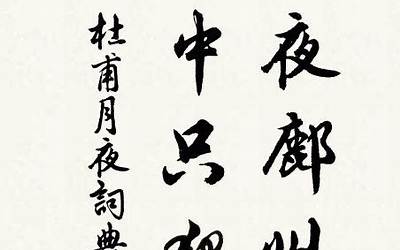 夜鄜州
中只獨
杜甫月夜詞典